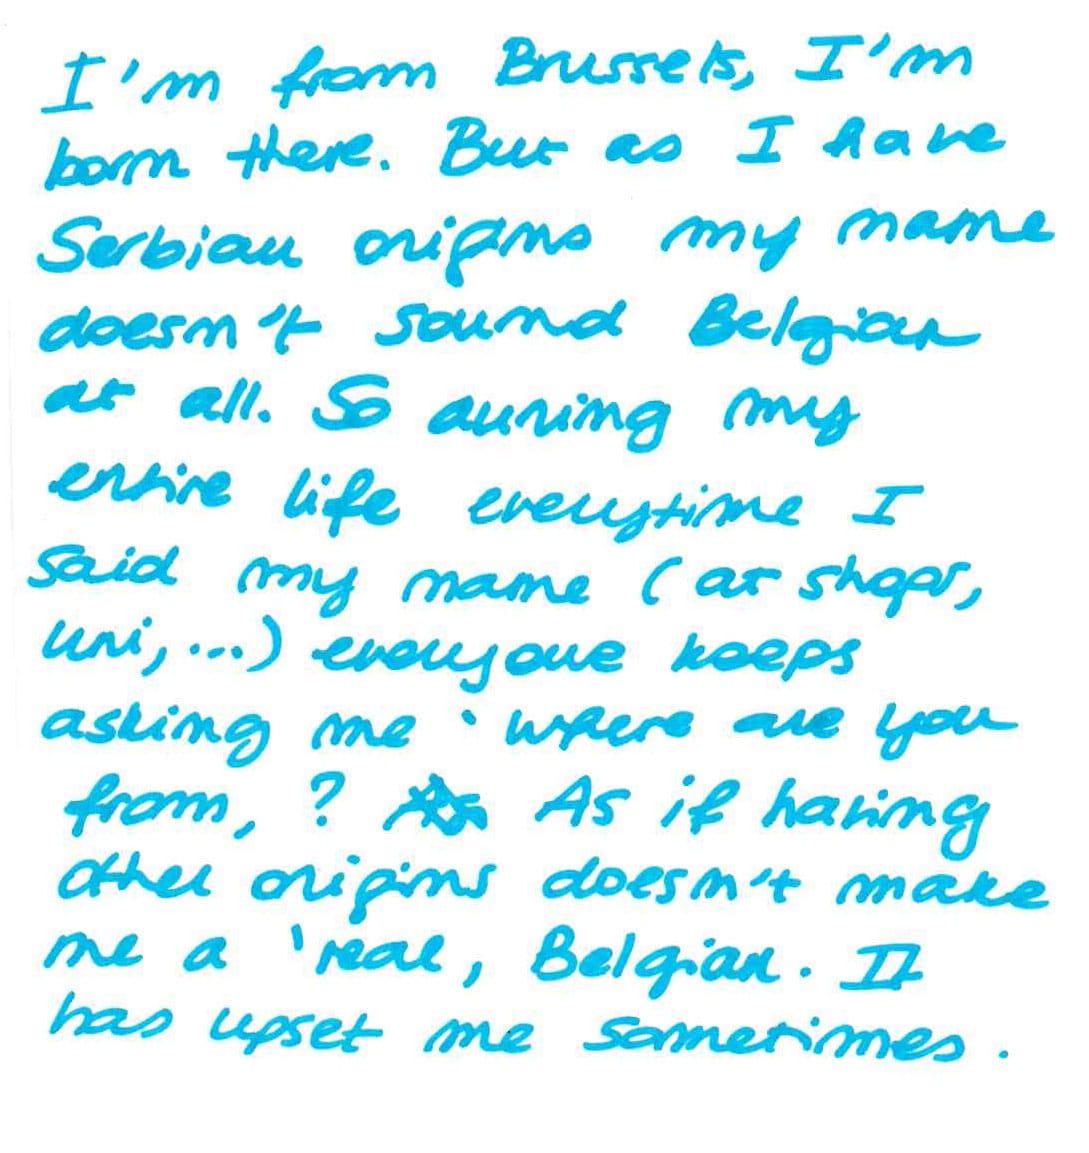 I'm from Brussels, I'm
born there. But as I have
Serbian origins my name
doesn't sound Belgian
at all. So during my
entire life everytime I
said my name (at shops,
uni,...) everyone keeps
asking me 'where are you
from, ? As if having
other origins doesn't make
me a 'real, Belgian. It
has upset me sometimes.